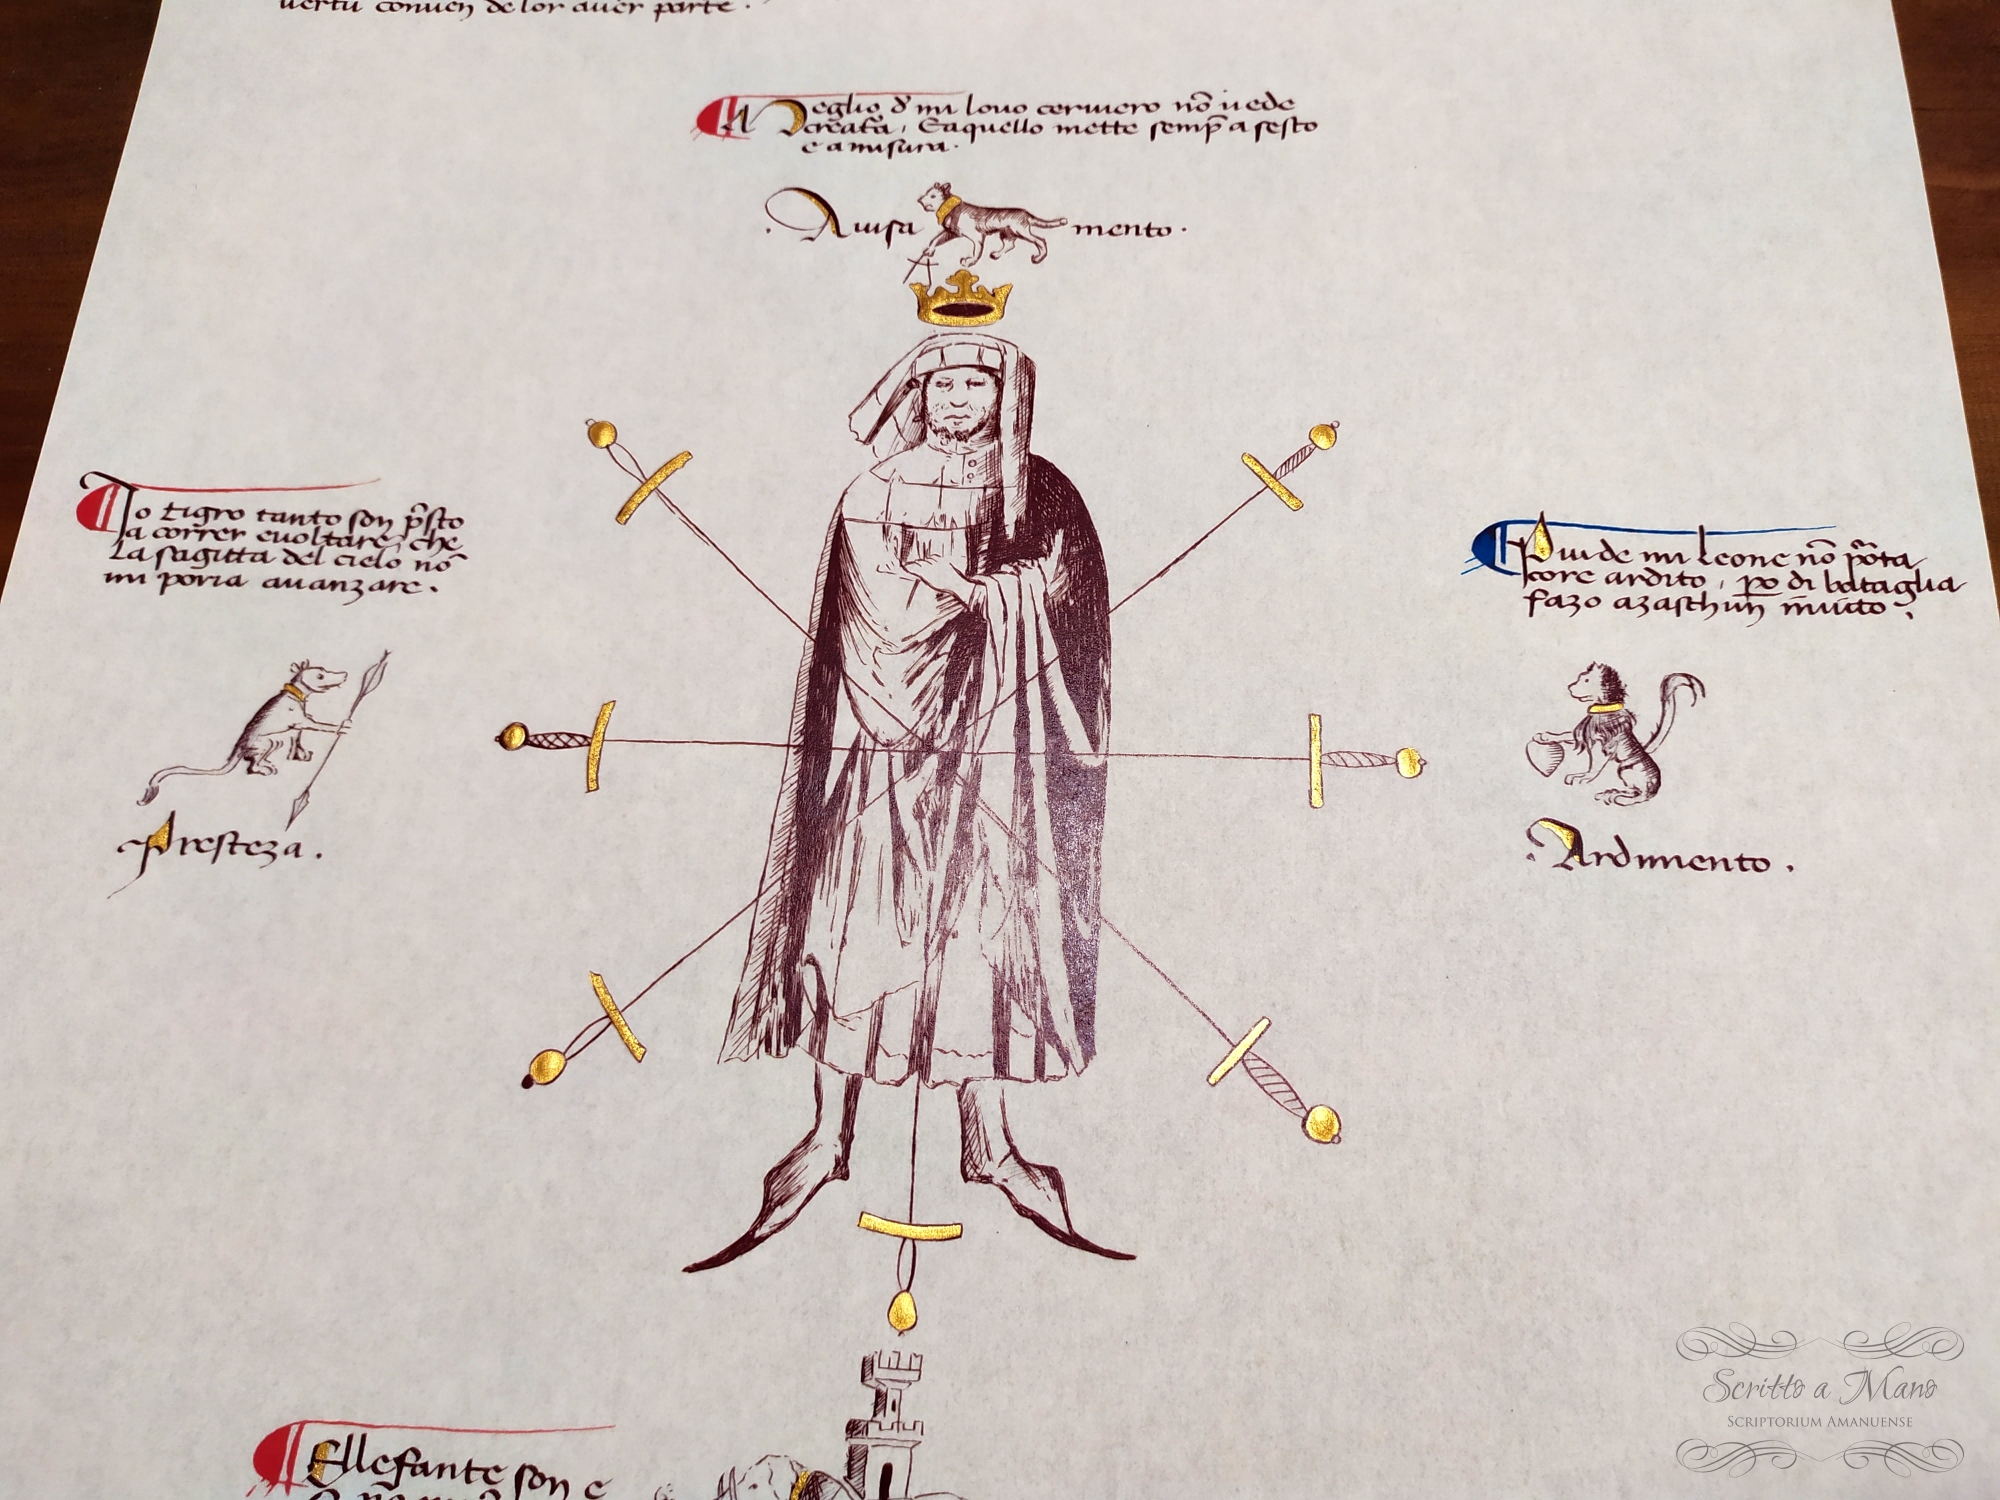 vertu conven de lor aver parte.
Meglio d̃ mi lovo cerviero nõ vede
creat̃a, Eaquello mette semp̃ a sesto
e a misura.
Avisa mento.
Io tigro tanto son p̃sto
a correr evoltare, che
La sagitta del cielo nõ
mi poria avanzare.
Presteza.
Piu de mi Leone nõ p̃ota
core ardito, po di bataglia
fazo azaschun invito.
Ardimento.
Ellefante son e
Scritto a Mano
SCRIPTORIUM AMANUENSE